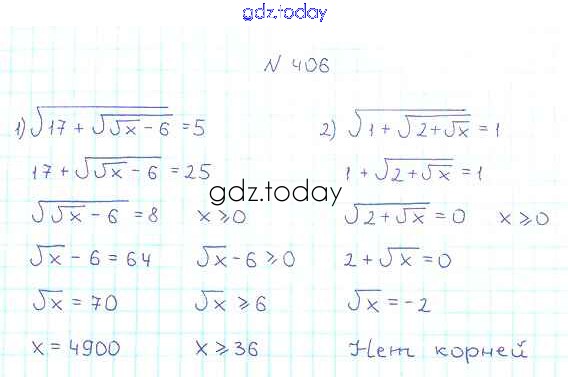 gdz.today
N 406
1) √(17 + √(√x - 6)) = 5
17 + √(√x - 6) = 25
√(√x - 6) = 8 x ⩾ 0
√x - 6 = 64 √x - 6 ⩾ 0
√x = 70 √x ⩾ 6
x = 4900 x ⩾ 36
2) √(1 + √(2 + √x)) = 1
1 + √(2 + √x) = 1
√(2 + √x) = 0 x ⩾ 0
2 + √x = 0
√x = -2
Нет корней
gdz.today